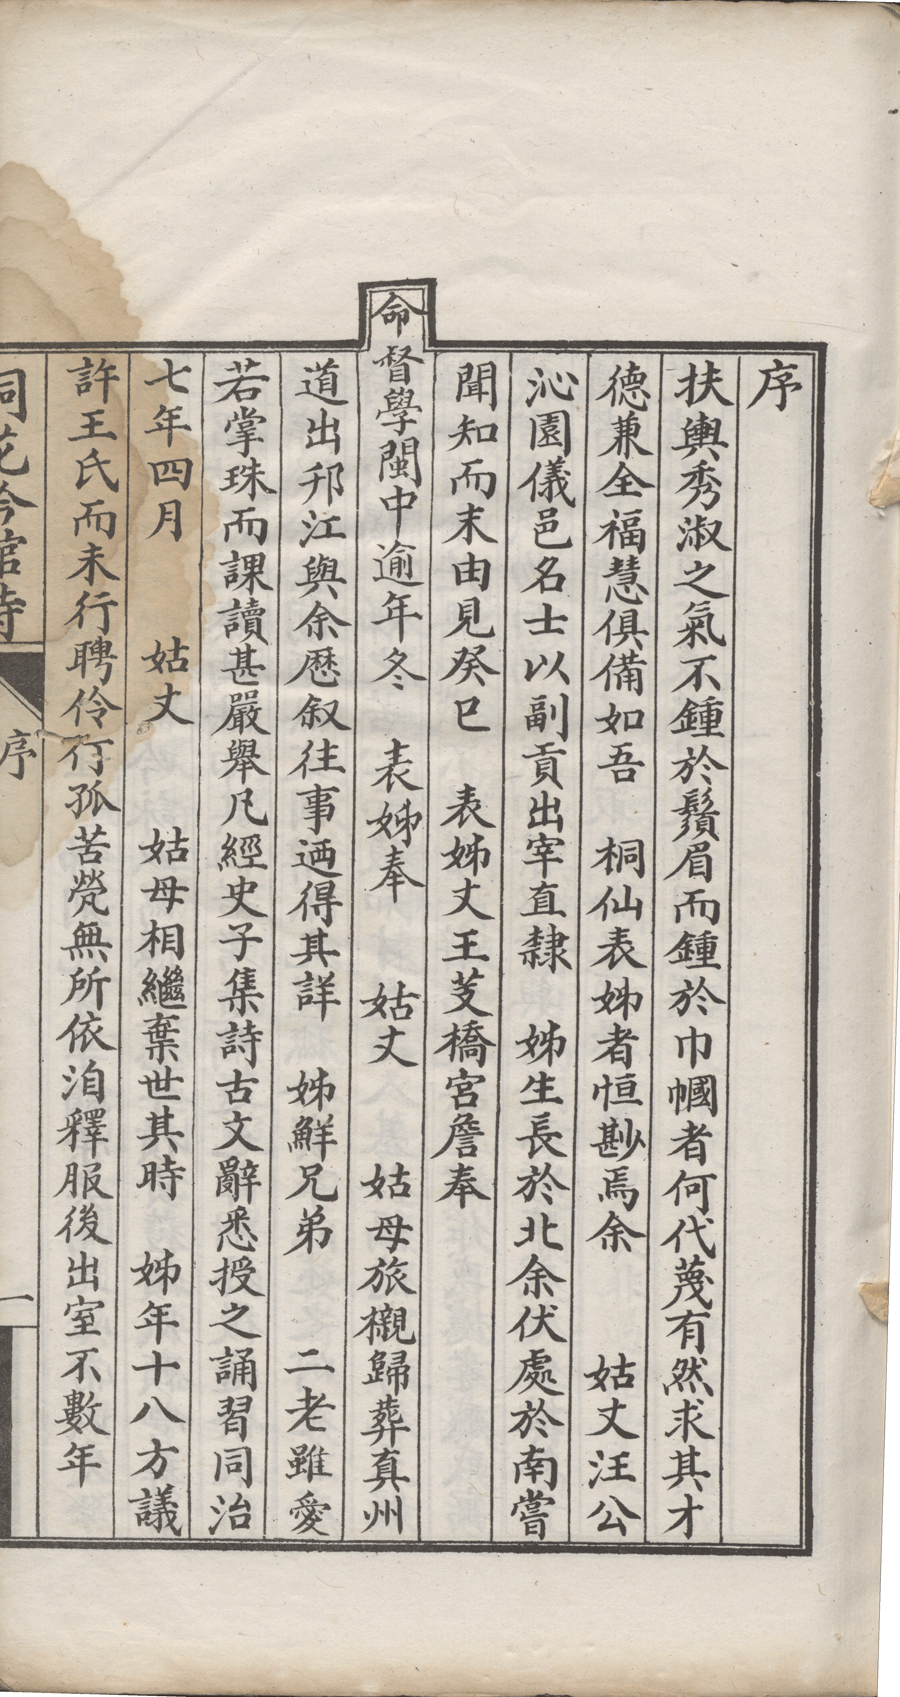 序
扶輿秀淑之氣不鍾於鬚眉而鍾於巾幗者何代蔑有然求其才
德兼全福慧俱備如吾　桐仙表姊者恒尠焉余　　姑丈汪公
沁園儀邑名士以副貢出宰直隸　姊生長於北余伏處於南嘗
聞知而末由見癸巳　表姊丈王芰橋宮詹奉
命督學閩中逾年冬　表姊奉　　姑丈　　姑母旅櫬歸葬真州
道出邗江與余歷叙往事迺得其詳　姊鮮兄弟　　二老雖愛
若掌珠而課讀甚嚴舉凡經史子集詩古文辭悉授之誦習同治
七年四月　　姑丈　　姑母相繼棄世其時　姊年十八方議
許王氏而未行聘伶仃孤苦煢無所依洎釋服後出室不數年
桐花吟館詩
序
一